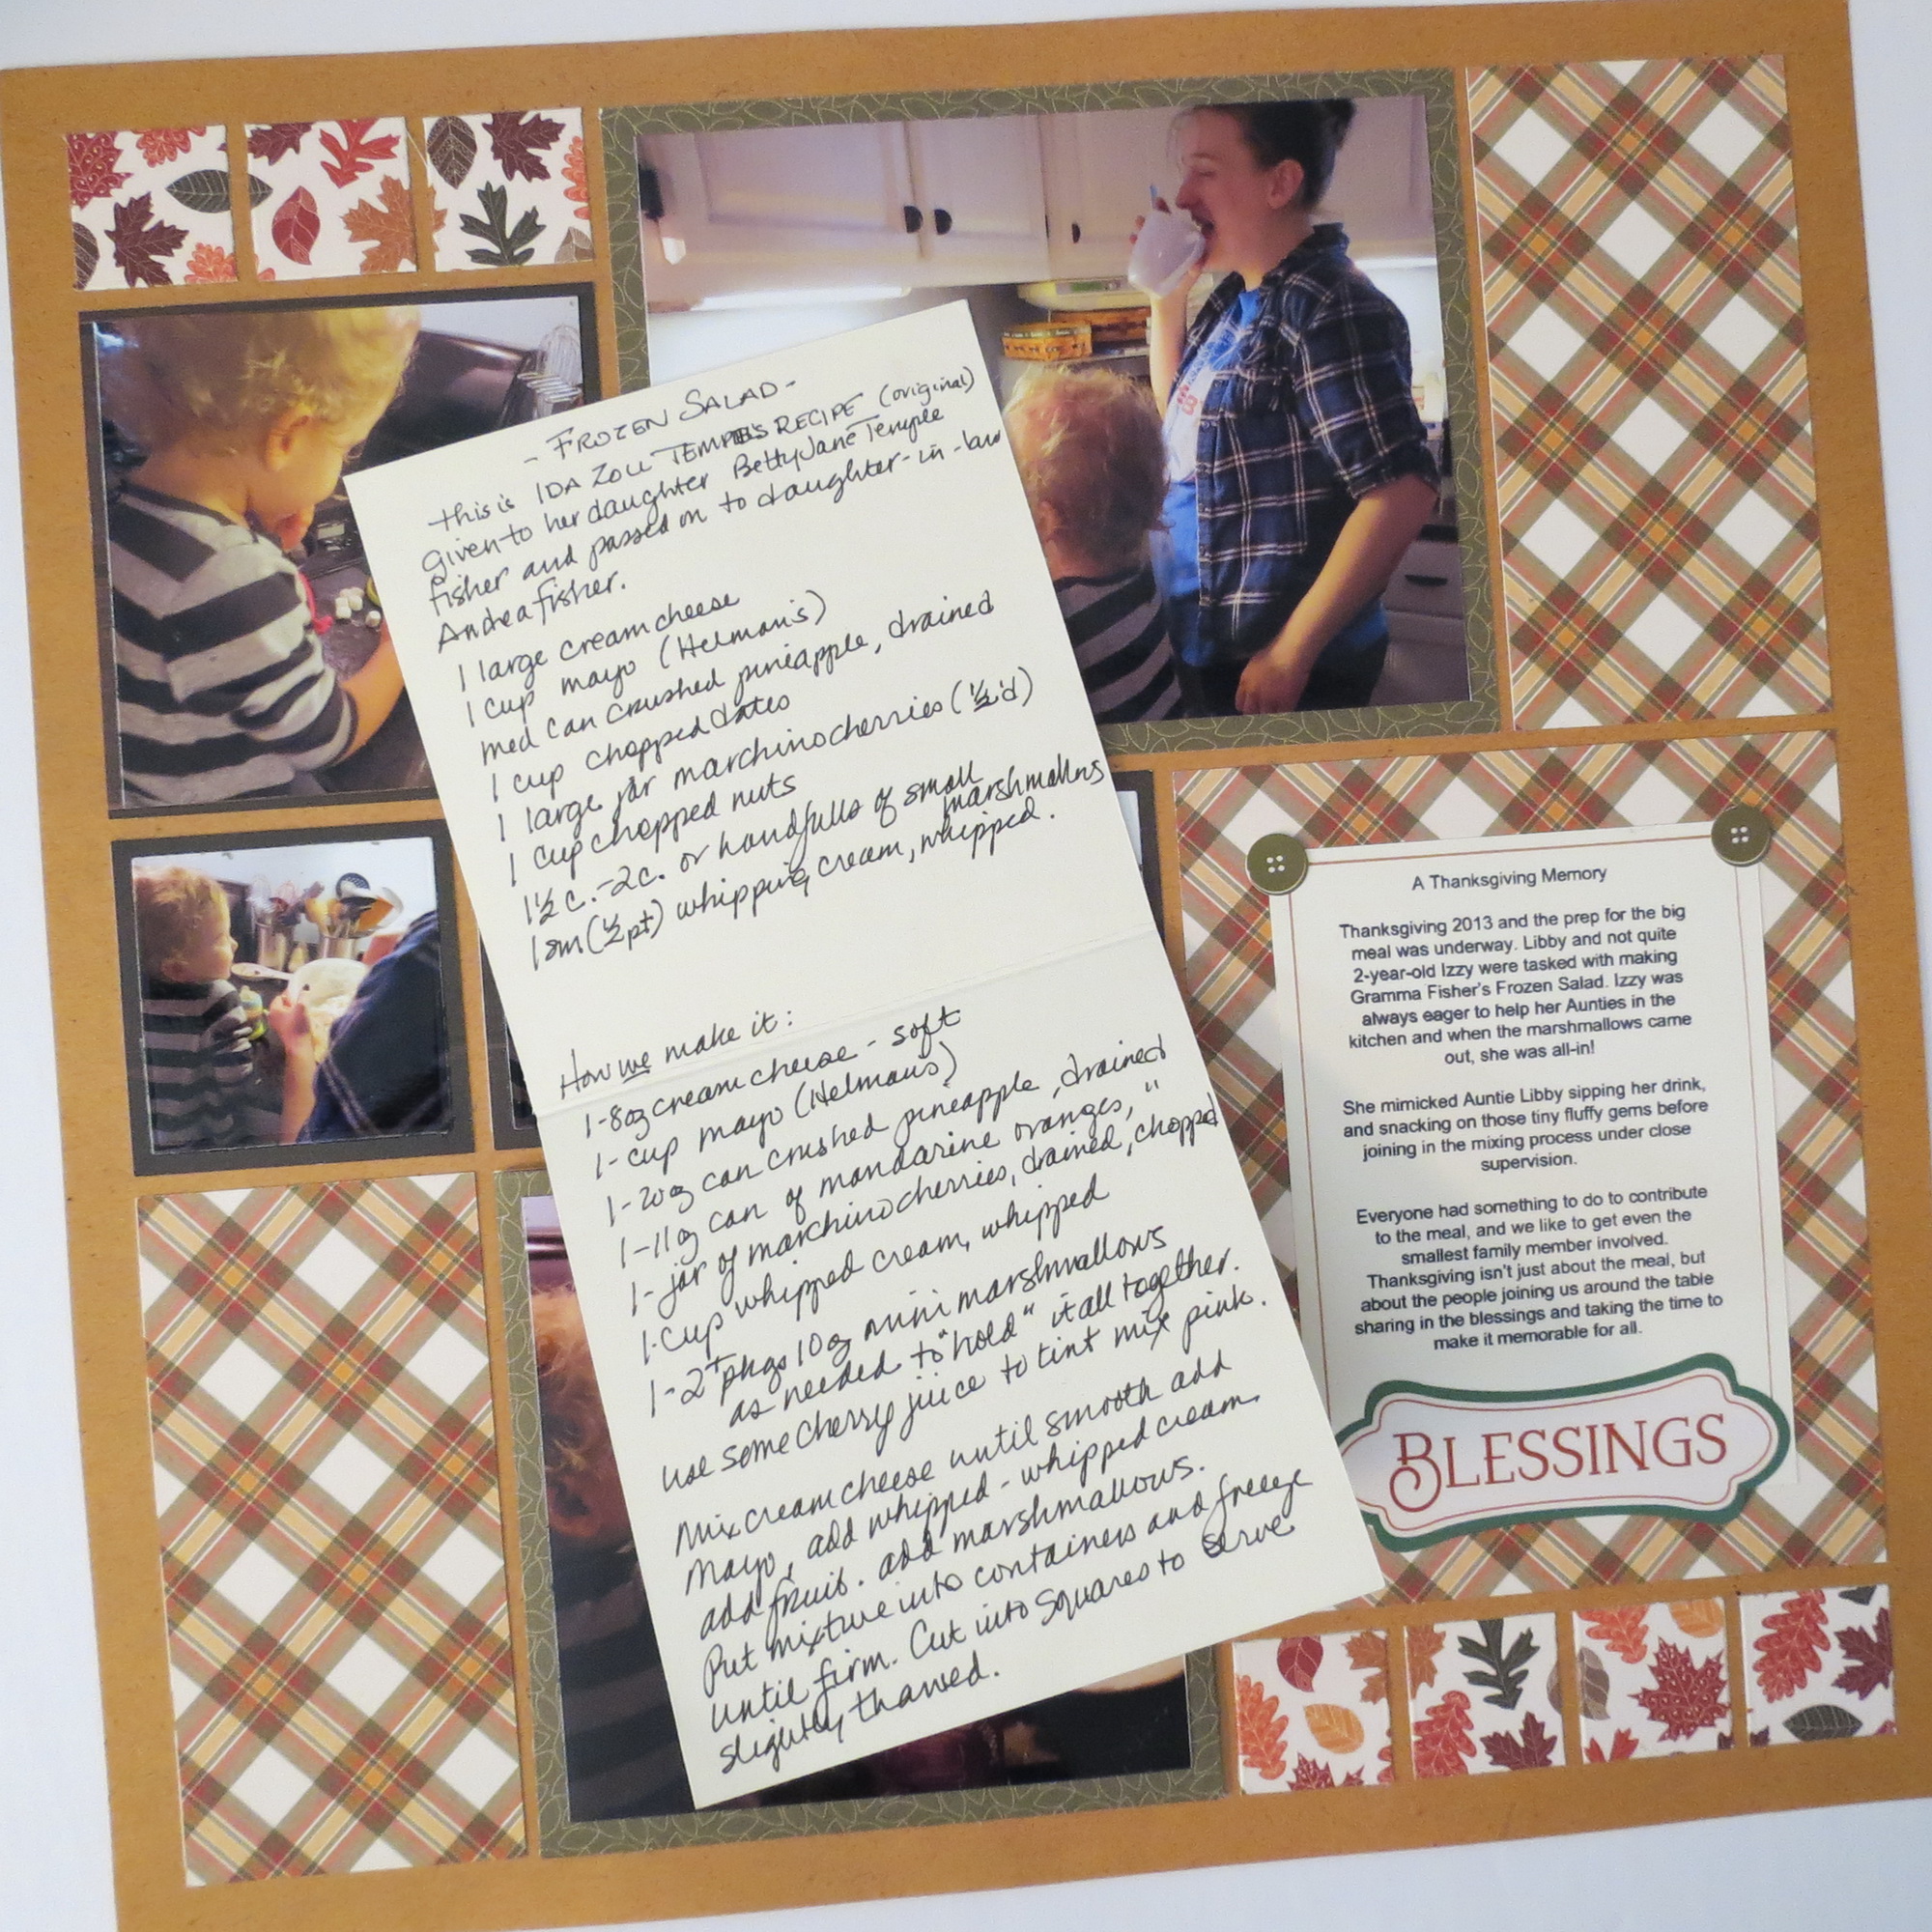 - FROZEN SALAD -
this is IDA ZOLL TEMPLE'S RECIPE (original)
given to her daughter Betty Jane Temple
fisher and passed on to daughter-in-law
Andrea fisher.
1 large cream cheese
1 cup mayo (Helman's)
med can crushed pineapple, drained
1 cup chopped dates
1 large jar marchino cherries (½'d)
1 cup chopped nuts
1½ c. - 2c. or handfulls of small marshmallows
1 sm (½ pt) whipping cream, whipped.
How we make it:
1-8oz cream cheese - soft
1-cup mayo (Helmans)
1-20oz can crushed pineapple, drained
1-11oz can of mandarine oranges, "
1-jar of marchino cherries, drained, chopped
1-cup whipped cream, whipped
1-2+ pkgs 10oz mini marshmallows
as needed to "hold" it all together.
use some cherry juice to tint mix pink.
Mix cream cheese until smooth add
mayo, add whipped - whipped cream.
add fruit. add marshmallows.
Put mixture into containers and freeze
until firm. Cut into squares to serve
slightly thawed.
A Thanksgiving Memory
Thanksgiving 2013 and the prep for the big
meal was underway. Libby and not quite
2-year-old Izzy were tasked with making
Gramma Fisher's Frozen Salad. Izzy was
always eager to help her Aunties in the
kitchen and when the marshmallows came
out, she was all-in!
She mimicked Auntie Libby sipping her drink,
and snacking on those tiny fluffy gems before
joining in the mixing process under close
supervision.
Everyone had something to do to contribute
to the meal, and we like to get even the
smallest family member involved.
Thanksgiving isn't just about the meal, but
about the people joining us around the table
sharing in the blessings and taking the time to
make it memorable for all.
BLESSINGS